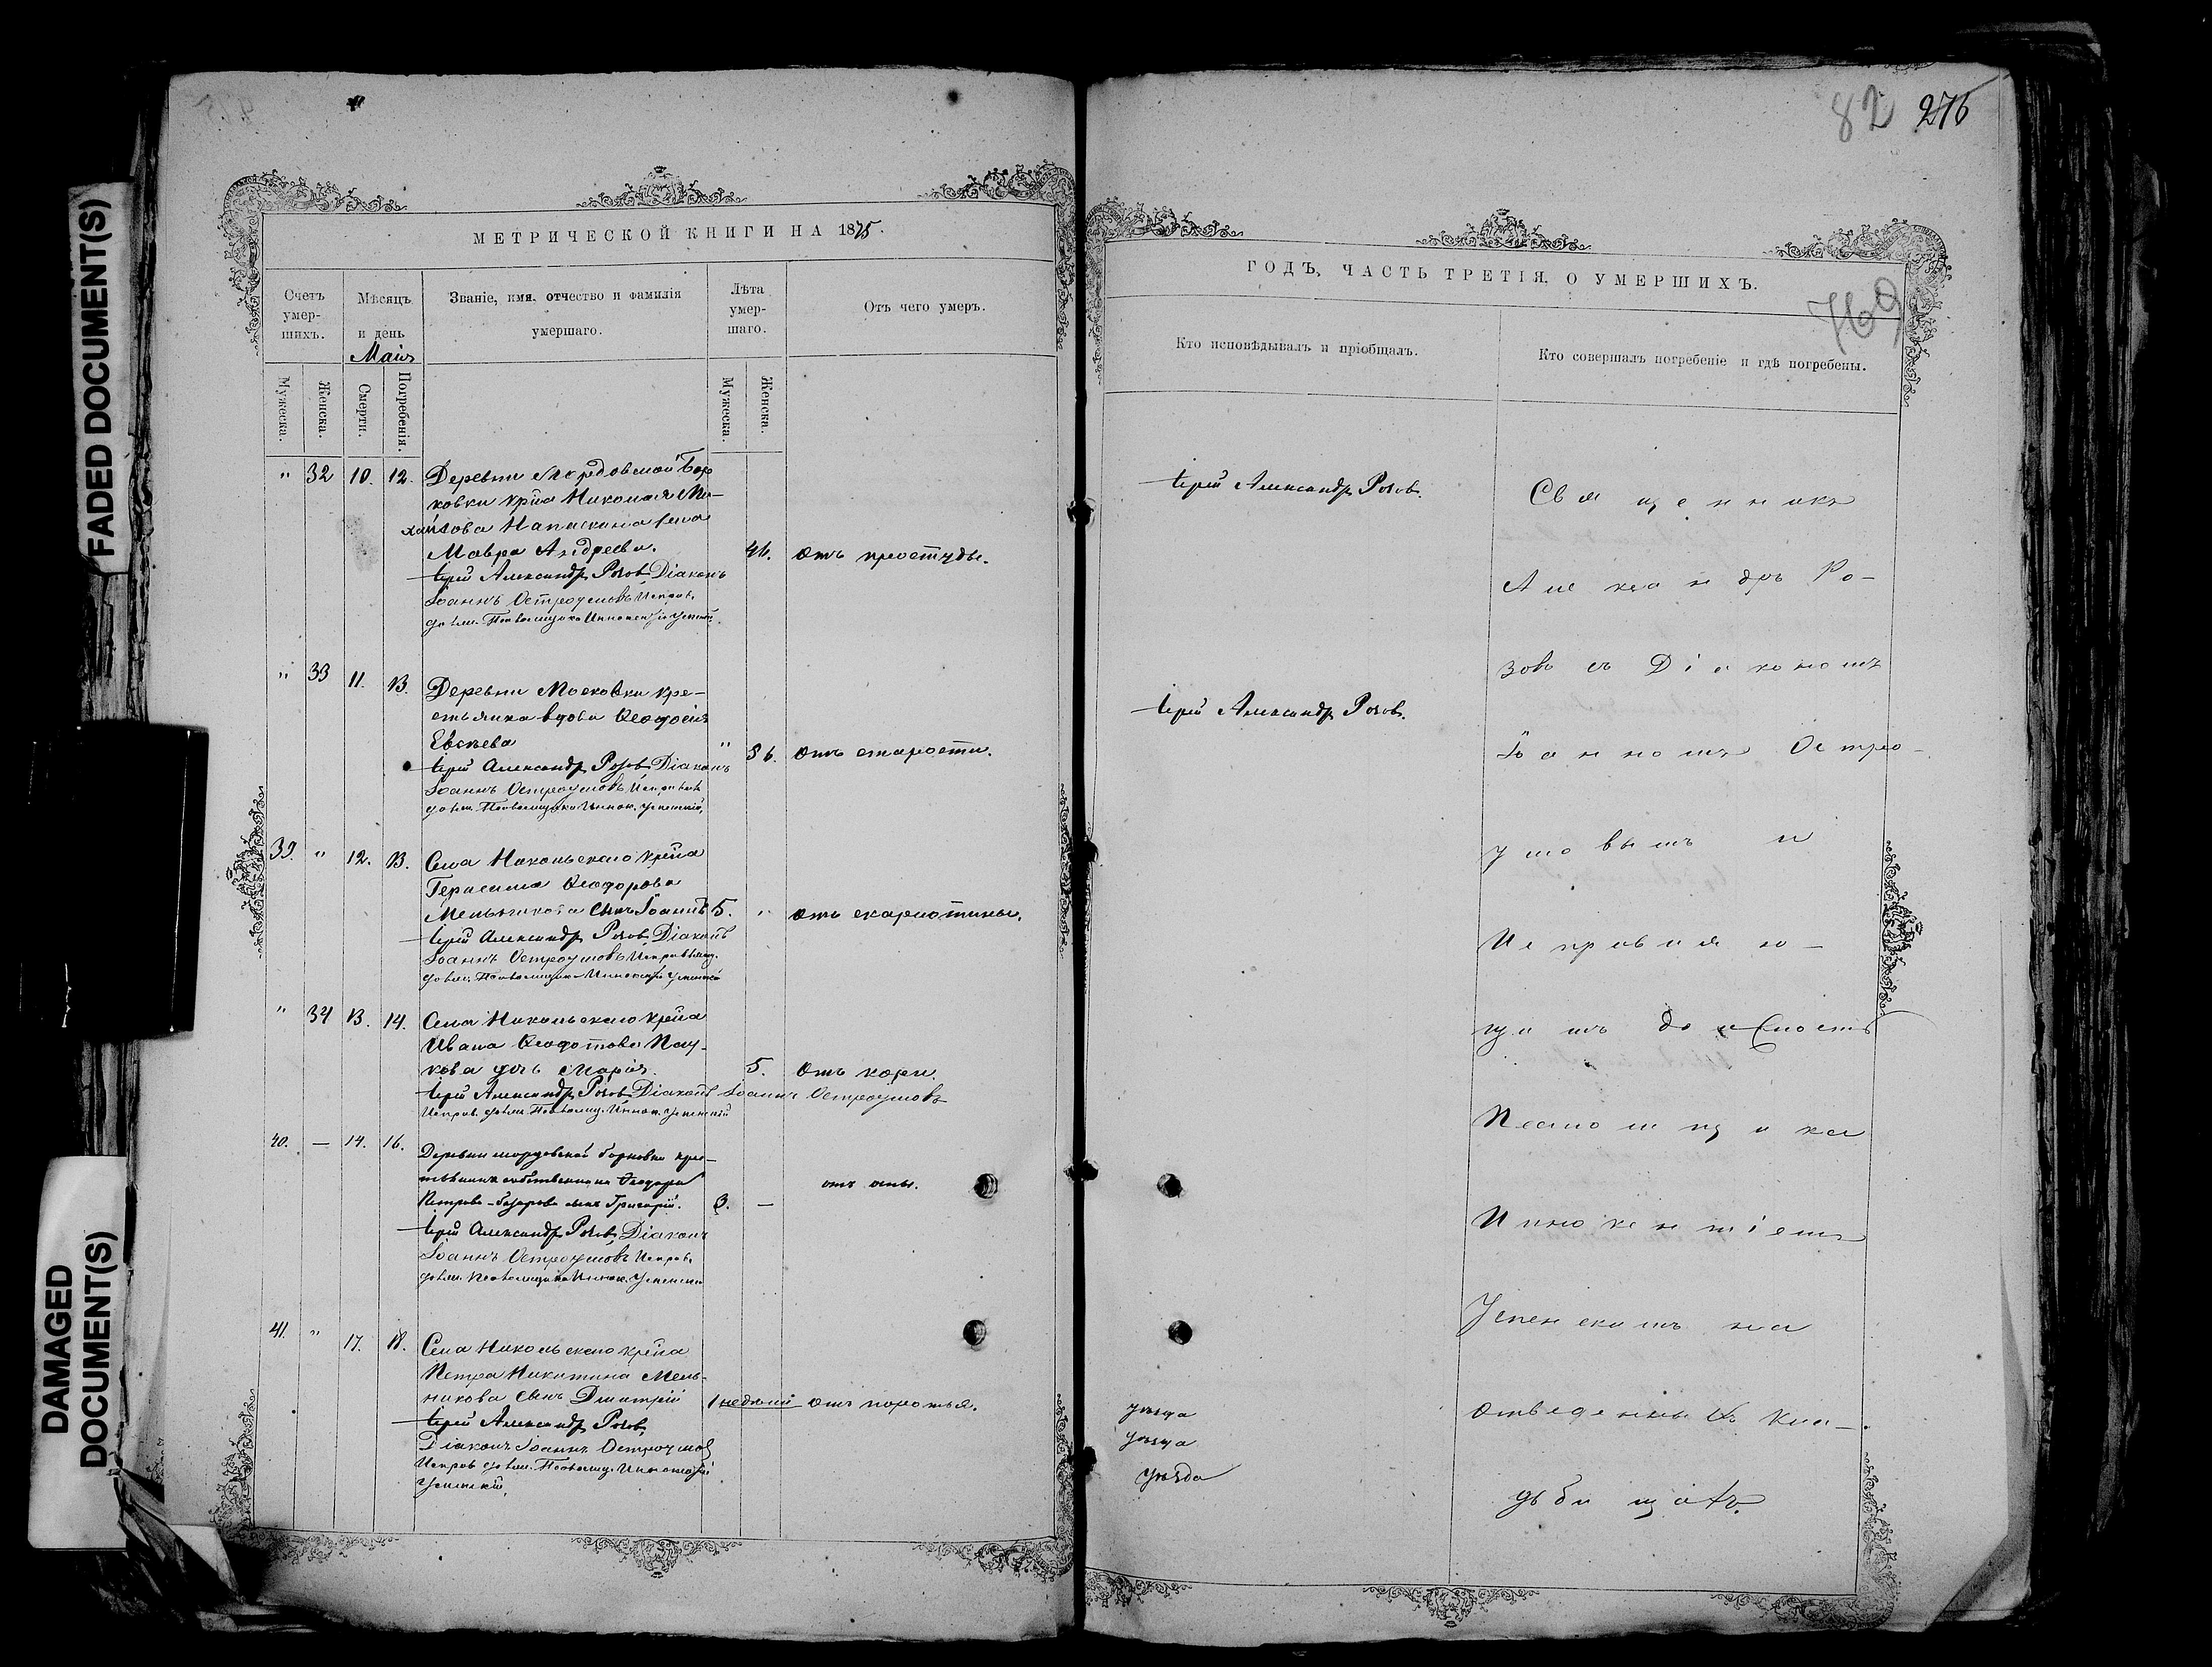 FADED DOCUMENT(S)
DAMAGED
DOCUMENT(S)
МЕТРИЧЕСКОЙ КНИГИ НА 1875.
Счетъ умер-шихъ.
Мѣсяцъ и день
Маія
Званіе, имя, отчество и фамилія умершаго.
Лѣта умер-шаго.
Отъ чего умеръ.
Мужеска.
Женска.
Смерти.
Погребенія.
Мужеска.
Женска.
" 32 10. 12. Деревни Мордовской Бор
ковки крна Николая Ми-
хайлова жена
Мавра Андреева. 46. отъ простуды.
Іерей Александръ Розовъ Діаконъ
Іоаннъ Остроумовъ Исправ.
должн. Псаломщика Иннокентій Успенскій.
" 33 11. 13. Деревни Московки кре-
стьянка вдова Ѳеодосія
Евсѣева " 86. отъ старости.
Іерей Александръ Розовъ Діаконъ
Іоаннъ Остроумовъ Исправ
должн. Псаломщика Иннок. Успенскій.
39. " 12. 13. Села Никольскаго крна
Герасима Ѳеодорова
Мельникова сынъ Іоаннъ 5. " отъ скарлотины.
Іерей Александръ Розовъ Діаконъ
Іоаннъ Остроумовъ
должн. Псаломщика Иннокентій Успенскій
" 34 13. 14. Села Никольскаго крна
Ивана Ѳеодотова Пау-
кова дочь Марія. 5. отъ кори.
Іерей Александръ Розовъ Діаконъ Іоаннъ Остроумовъ
Исправ. должн. Псаломщ. Иннок. Успенскій
40. — 14. 16. Деревни мордовской борковки крес-
тьянина собственника Ѳеодора
Петрова сынъ Григорій. 3. — отъ оспы.
Іерей Александръ Розовъ Діаконъ
Іоаннъ Остроумовъ Исправ.
должн. Псаломщика Иннок. Успенскій
41. " 17. 18. Села Никольскаго крна
Петра Никитина Мель-
никова сынъ Дмитрій 1 недѣли отъ поротья.
Іерей Александръ Розовъ
Діаконъ Іоаннъ Остроумовъ
Исправ должн. Псаломщ. Иннокентій
Успенскій.
82 276
ГОДЪ, ЧАСТЬ ТРЕТІЯ, О УМЕРШИХЪ.
769
Кто исповѣдывалъ и пріобщалъ.
Кто совершалъ погребеніе и гдѣ погребены.
Іерей Александръ Розовъ.
Іерей Александръ Розовъ.
уѣзда
уѣзда
уѣзда
Священникъ
Александръ Ро-
зовъ съ Діакономъ
Іоанномъ Остро-
умовымъ и
Исправляю-
щимъ должность
Псаломщика
Иннокентіемъ
Успенскимъ на
отведенномъ кла-
дбищахъ.